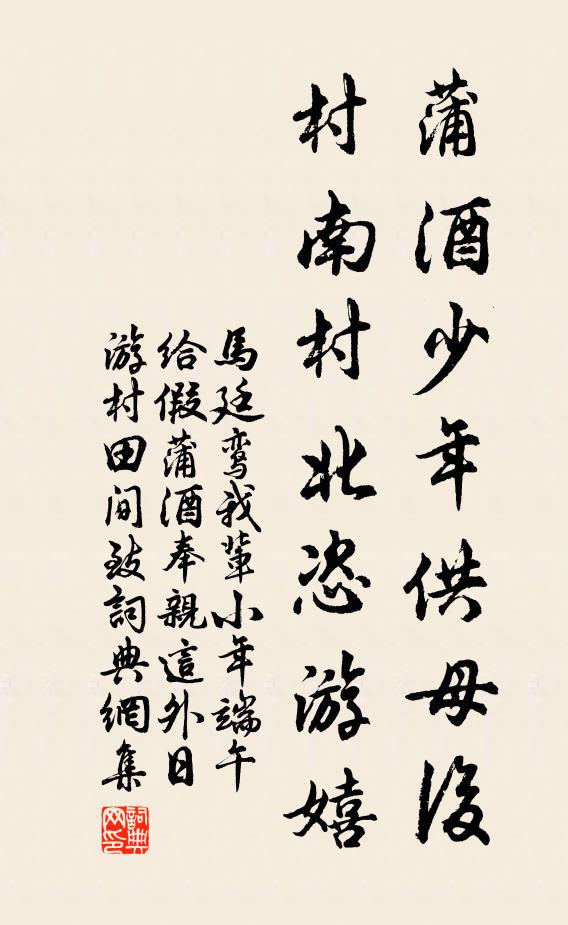 蒲酒少年供母後
村南村北恣游嬉
馬廷鸾我輩小年端午
给假蒲酒奉親這外日
游村田间致詞典網集
詞典网印